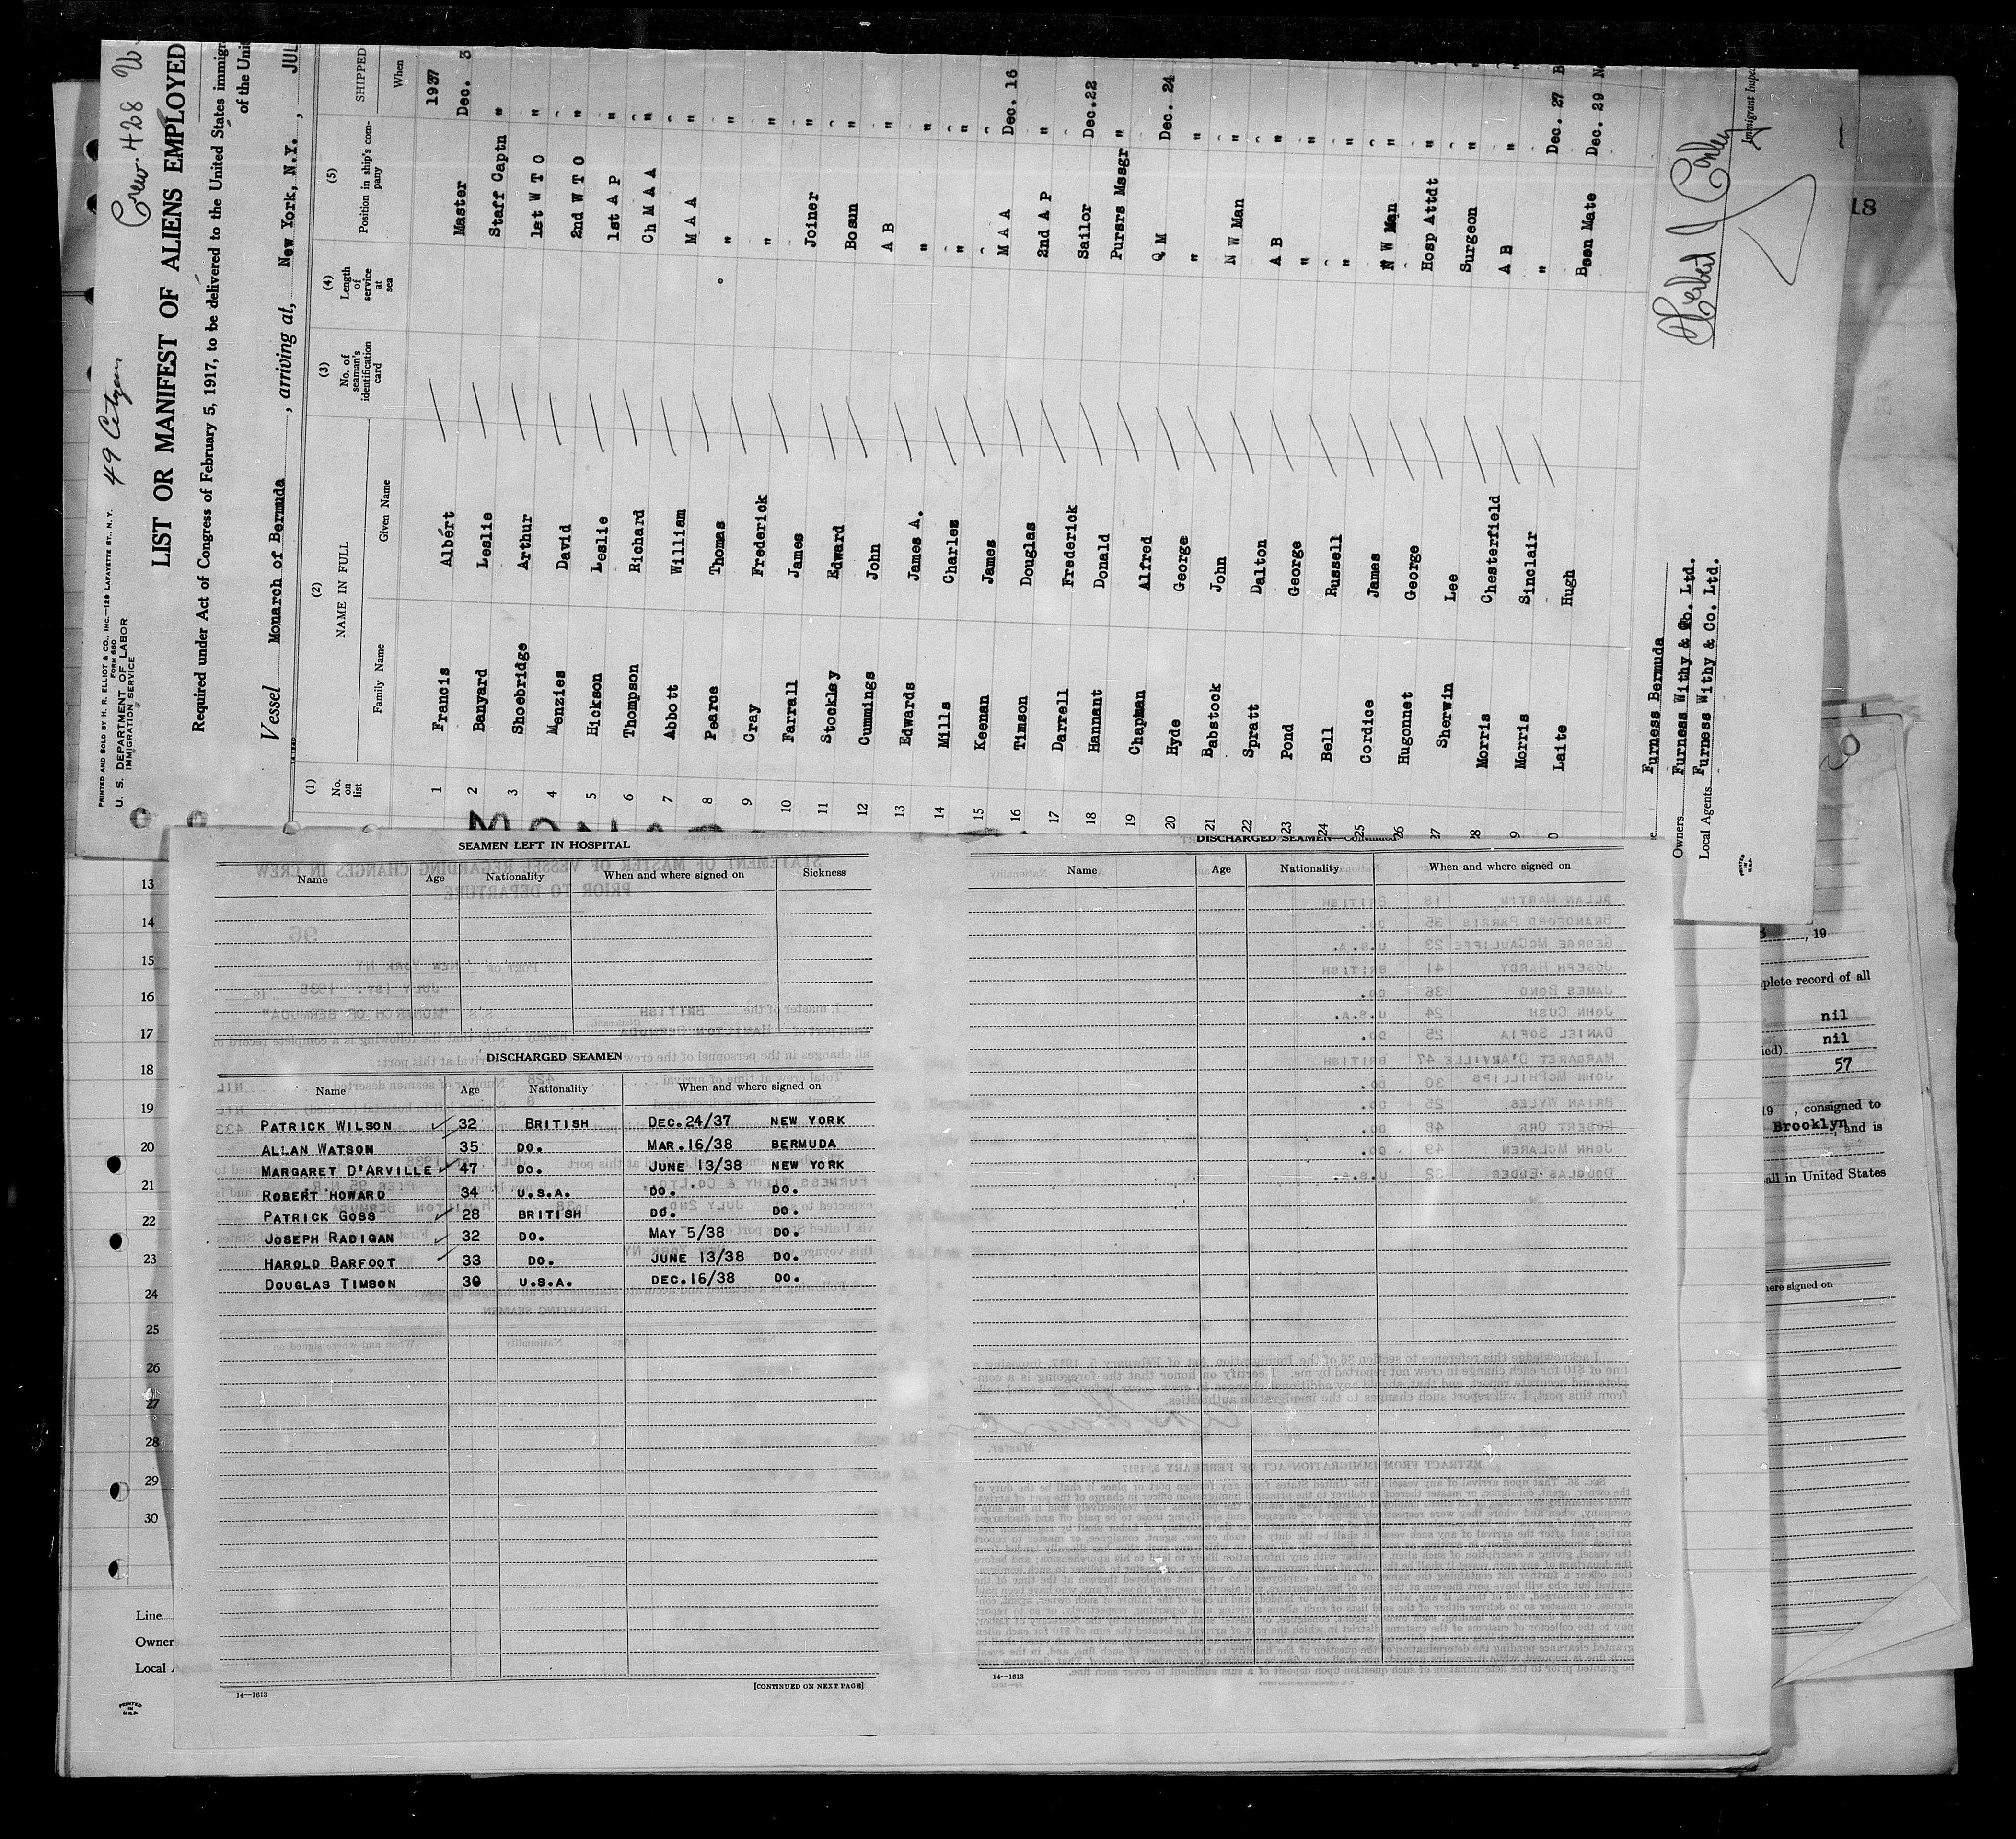 PRINTED AND SOLD BY H. R. ELLIOT & CO., INC.—129 LAFAYETTE ST., N. Y.
FORM 680
U. S. DEPARTMENT OF LABOR
IMMIGRATION SERVICE
49 Citizen
Crew 428
LIST OR MANIFEST OF ALIENS EMPLOYED
Required under Act of Congress of February 5, 1917, to be delivered to the United States immigr
of the Unit
Vessel Monarch of Bermuda, arriving at, New York, N.Y., JUL
(1) No. on list (2) NAME IN FULL Family Name Given Name (3) No. of seaman's identification card (4) Length of service at sea (5) Position in ship's company SHIPPED When
1937
1 Francis Albért Master Dec. 3
2 Banyard Leslie Staff Captn "
3 Shoebridge Arthur 1st W T O "
4 Menzies David 2nd W T O "
5 Hickson Leslie 1st A P "
6 Thompson Richard Ch M A A "
7 Abbott William M A A "
8 Pearce Thomas " "
9 Cray Frederick " "
10 Farrall James Joiner "
11 Stockley Edward Bosun "
12 Cummings John A B "
13 Edwards James A. " "
14 Mills Charles " "
15 Keenan James
16 Timson Douglas M A A Dec. 16
17 Darrell Frederick 2nd A P "
18 Hannant Donald Sailor Dec.22
19 Chapman Alfred Pursrs Mssgr "
20 Hyde George Q M Dec. 24
21 Babstock John " "
22 Spratt Dalton N W Man "
23 Pond George A B "
24 Bell Russell " "
25 Cordice James " "
26 Hugonnet George N W Man "
27 Sherwin Lee Hosp Attdt "
28 Morris Chesterfield Surgeon "
9 Morris Sinclair A B "
0 Laite Hugh " Dec. 27 B
Bosn Mate Dec. 29 N
Furness Bermuda
Owners Furness Withy & Co. Ltd.
Local Agents Furness Withy & Co. Ltd.
PRINTED IN U.S.A.
Immigrant Inspec
18
SEAMEN LEFT IN HOSPITAL
Name Age Nationality When and where signed on Sickness
DISCHARGED SEAMEN
Name Age Nationality When and where signed on
PATRICK WILSON 32 BRITISH DEC.24/37 NEW YORK
ALLAN WATSON 35 DO. MAR.16/38 BERMUDA
MARGARET D'ARVILLE 47 DO. JUNE 13/38 NEW YORK
ROBERT HOWARD 34 U.S.A. DO. DO.
PATRICK GOSS 28 BRITISH DO. DO.
JOSEPH RADIGAN 32 DO. MAY 5/38 DO.
HAROLD BARFOOT 33 DO. JUNE 13/38 DO.
DOUGLAS TIMSON 30 U.S.A. DEC.16/38 DO.
14—1613
[CONTINUED ON NEXT PAGE]
DISCHARGED SEAMEN—Continued
Name Age Nationality When and where signed on
14—1613
13
14
15
16
17
18
19
20
21
22
23
24
25
26
27
28
29
30
Line
Owner
Local A
PRINTED IN U.S.A.
, 19
plete record of all
nil
nil
57
19 , consigned to
Brooklyn, and is
all in United States
here signed on